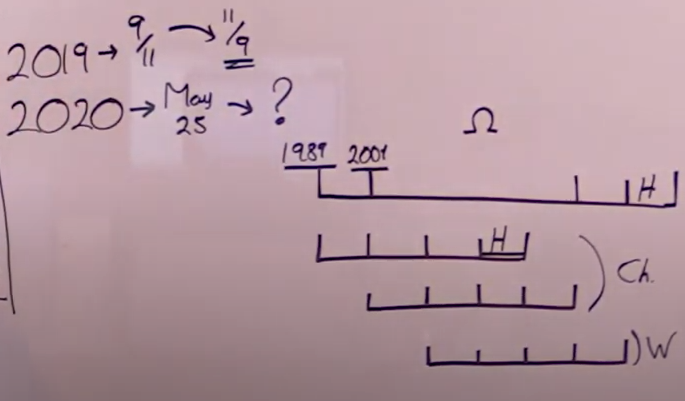 2019 → 9/11 → 11/9
2020 → May 25 → ?
Ω
1989 2001
H
H
Ch.
W